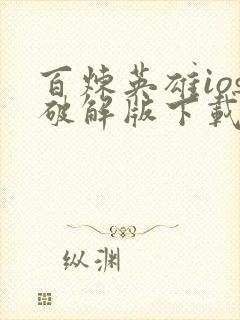 百炼英雄ios
破解版下载
纵渊